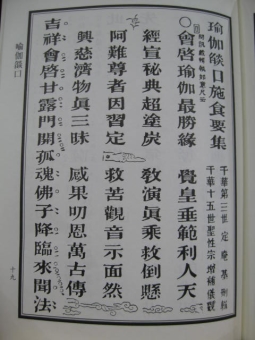 瑜伽燄口施食要集
千華第三世 定庵基
千華十五世聖性宗 增補儀觀
○會啓瑜伽最勝緣 覺皇垂範利人天
經宣秘典超塗炭 教演眞乘救倒懸
阿難尊者因習定 救苦觀音示面然
興慈濟物眞三昧 感果叨恩萬古傳
吉祥會啓甘露門開孤魂佛子降臨來聞法
瑜伽燄口
十九